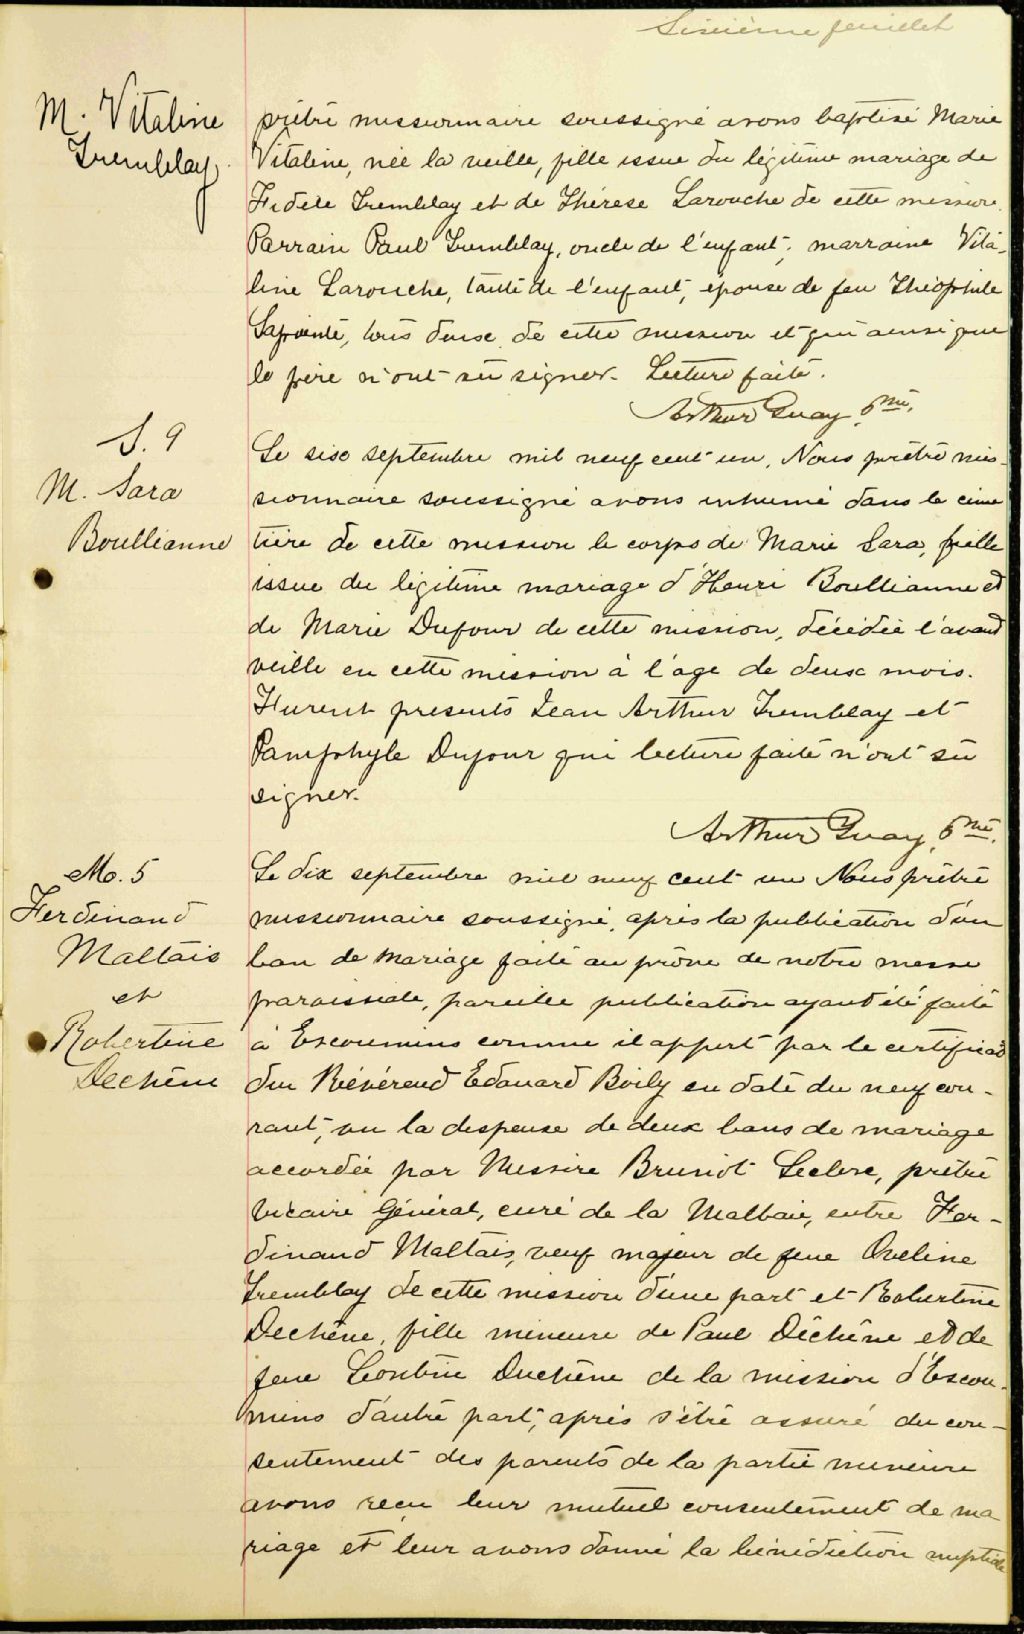 Sixième feuillet
M. Vitaline
Tremblay.
prêtre missionnaire soussigné avons baptisé Marie
Vitaline, née la veille, fille issue du légitime mariage de
Fidèle Tremblay et de Thérèse Larouche de cette mission.
Parrain Paul Tremblay, oncle de l'enfant; marraine Vita-
line Larouche, tante de l'enfant, épouse de feu Théophile
Lapointe, tous deux de cette mission et qui ainsi que
le père n'ont su signer. Lecture faite.
Arthur Guay, ptre.
S. 9
M. Sara
Boullianne
Le six septembre mil neuf cent un, Nous prêtre mis-
sionnaire soussigné avons inhumé dans le cime
tière de cette mission le corps de Marie Sara, fille
issue du légitime mariage d'Henri Boullianne et
de Marie Dufour de cette mission, décédée l'avant
veille en cette mission à l'age de deux mois.
Furent presents Jean Arthur Tremblay et
Pamphyle Dufour qui lecture faite n'ont su
signer.
Arthur Guay, ptre.
Mo. 5
Ferdinand
Maltais
et
Robertine
Dechêne
Le dix septembre mil neuf cent un Nous prêtre
missionnaire soussigné, après la publication d'un
ban de mariage faite au prône de notre messe
paroissiale, pareille publication ayant été faite
à Escoumins comme il appert par le certificat
du Révérend Edouard Boily en date du neuf cou-
rant, vu la dispense de deux bans de mariage
accordée par Messire Brunot Leclerc, prêtre
Vicaire Général, curé de la Malbaie, entre Fer-
dinand Maltais, veuf majeur de feue Oveline
Tremblay de cette mission d'une part et Robertine
Dechêne, fille mineure de Paul Dêchêne et de
feue Leontine Duchêne de la mission d'Escou-
mins d'autre part, après s'être assuré du con-
sentement des parents de la partie mineure
avons reçu leur mutuel consentement de ma
riage et leur avons donné la bénédiction nuptiale